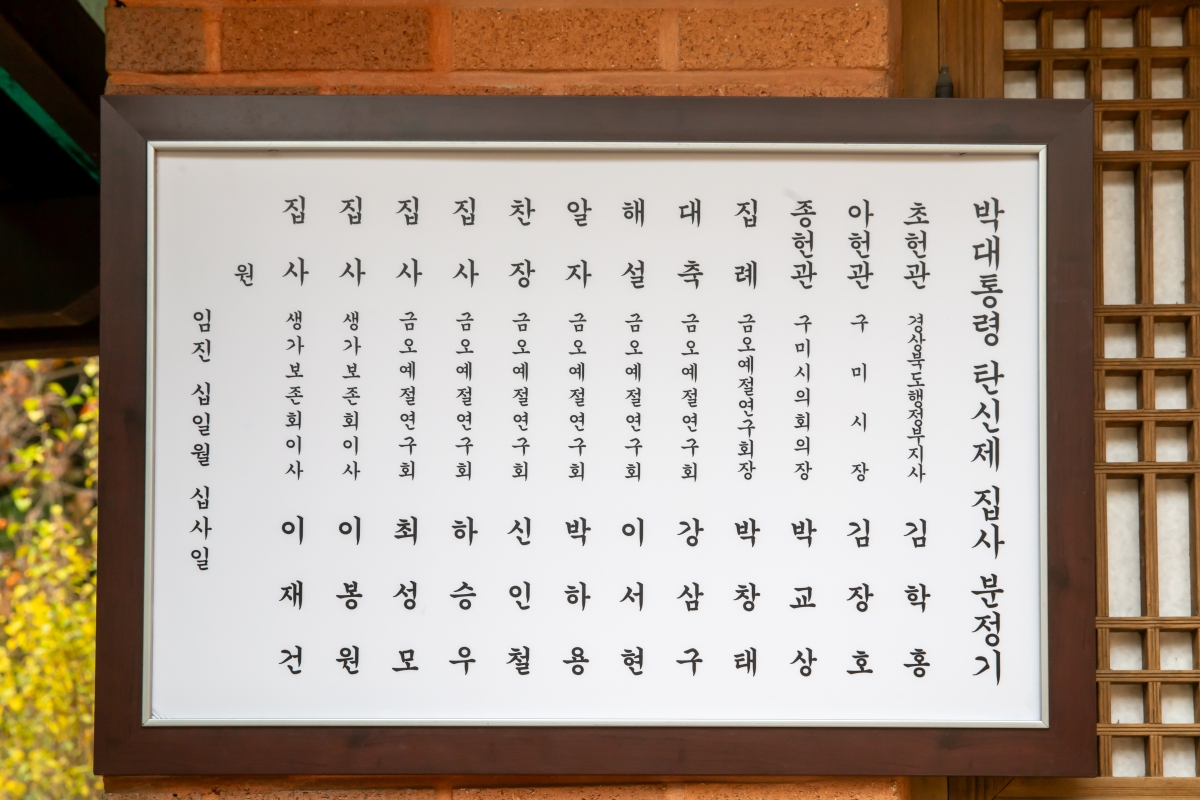 박대통령 탄신제 집사 분정기
초헌관 경상북도행정부지사 김학홍
아헌관 구미시장 김장호
종헌관 구미시의회의장 박교상
집례 금오예절연구회장 박창태
대축 금오예절연구회 강삼구
해설 금오예절연구회 이서현
알자 금오예절연구회 박하용
찬장 금오예절연구회 신인철
집사 금오예절연구회 하승우
집사 금오예절연구회 최성모
집사 생가보존회이사 이봉원
집사 생가보존회이사 이재건
원
임진 십일월 십사일